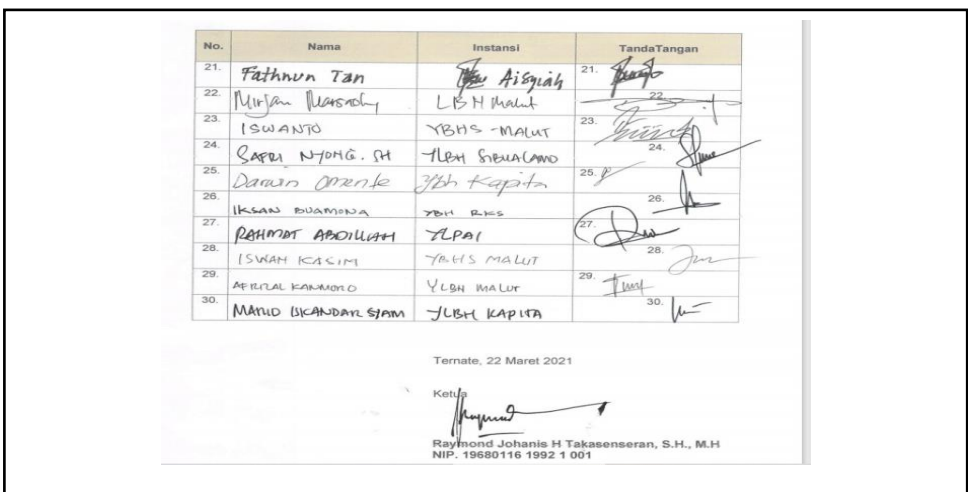 No. Nama Instansi TandaTangan
21. Fathnun Tan Aisyiah 21.
22. LBH Malut 22.
23. ISWANTO YBHS - MALUT 23.
24. SAFRI NYONG. SH YLBH SIBUALAMO 24.
25. Darwin Omente Ybh Kapita 25.
26. IKSAN BUAMONA YBH RKS 26.
27. RAHMAT ABDILLAH YLPAI 27.
28. ISWAN KASIM YBHS MALUT 28.
29. AFRIZAL KANMORO YLBH MALUT 29.
30. ISKANDAR SJAM YLBH KAPITA 30.
Ternate, 22 Maret 2021
Ketua
Raymond Johanis H Takasenseran, S.H., M.H
NIP. 19680116 1992 1 001